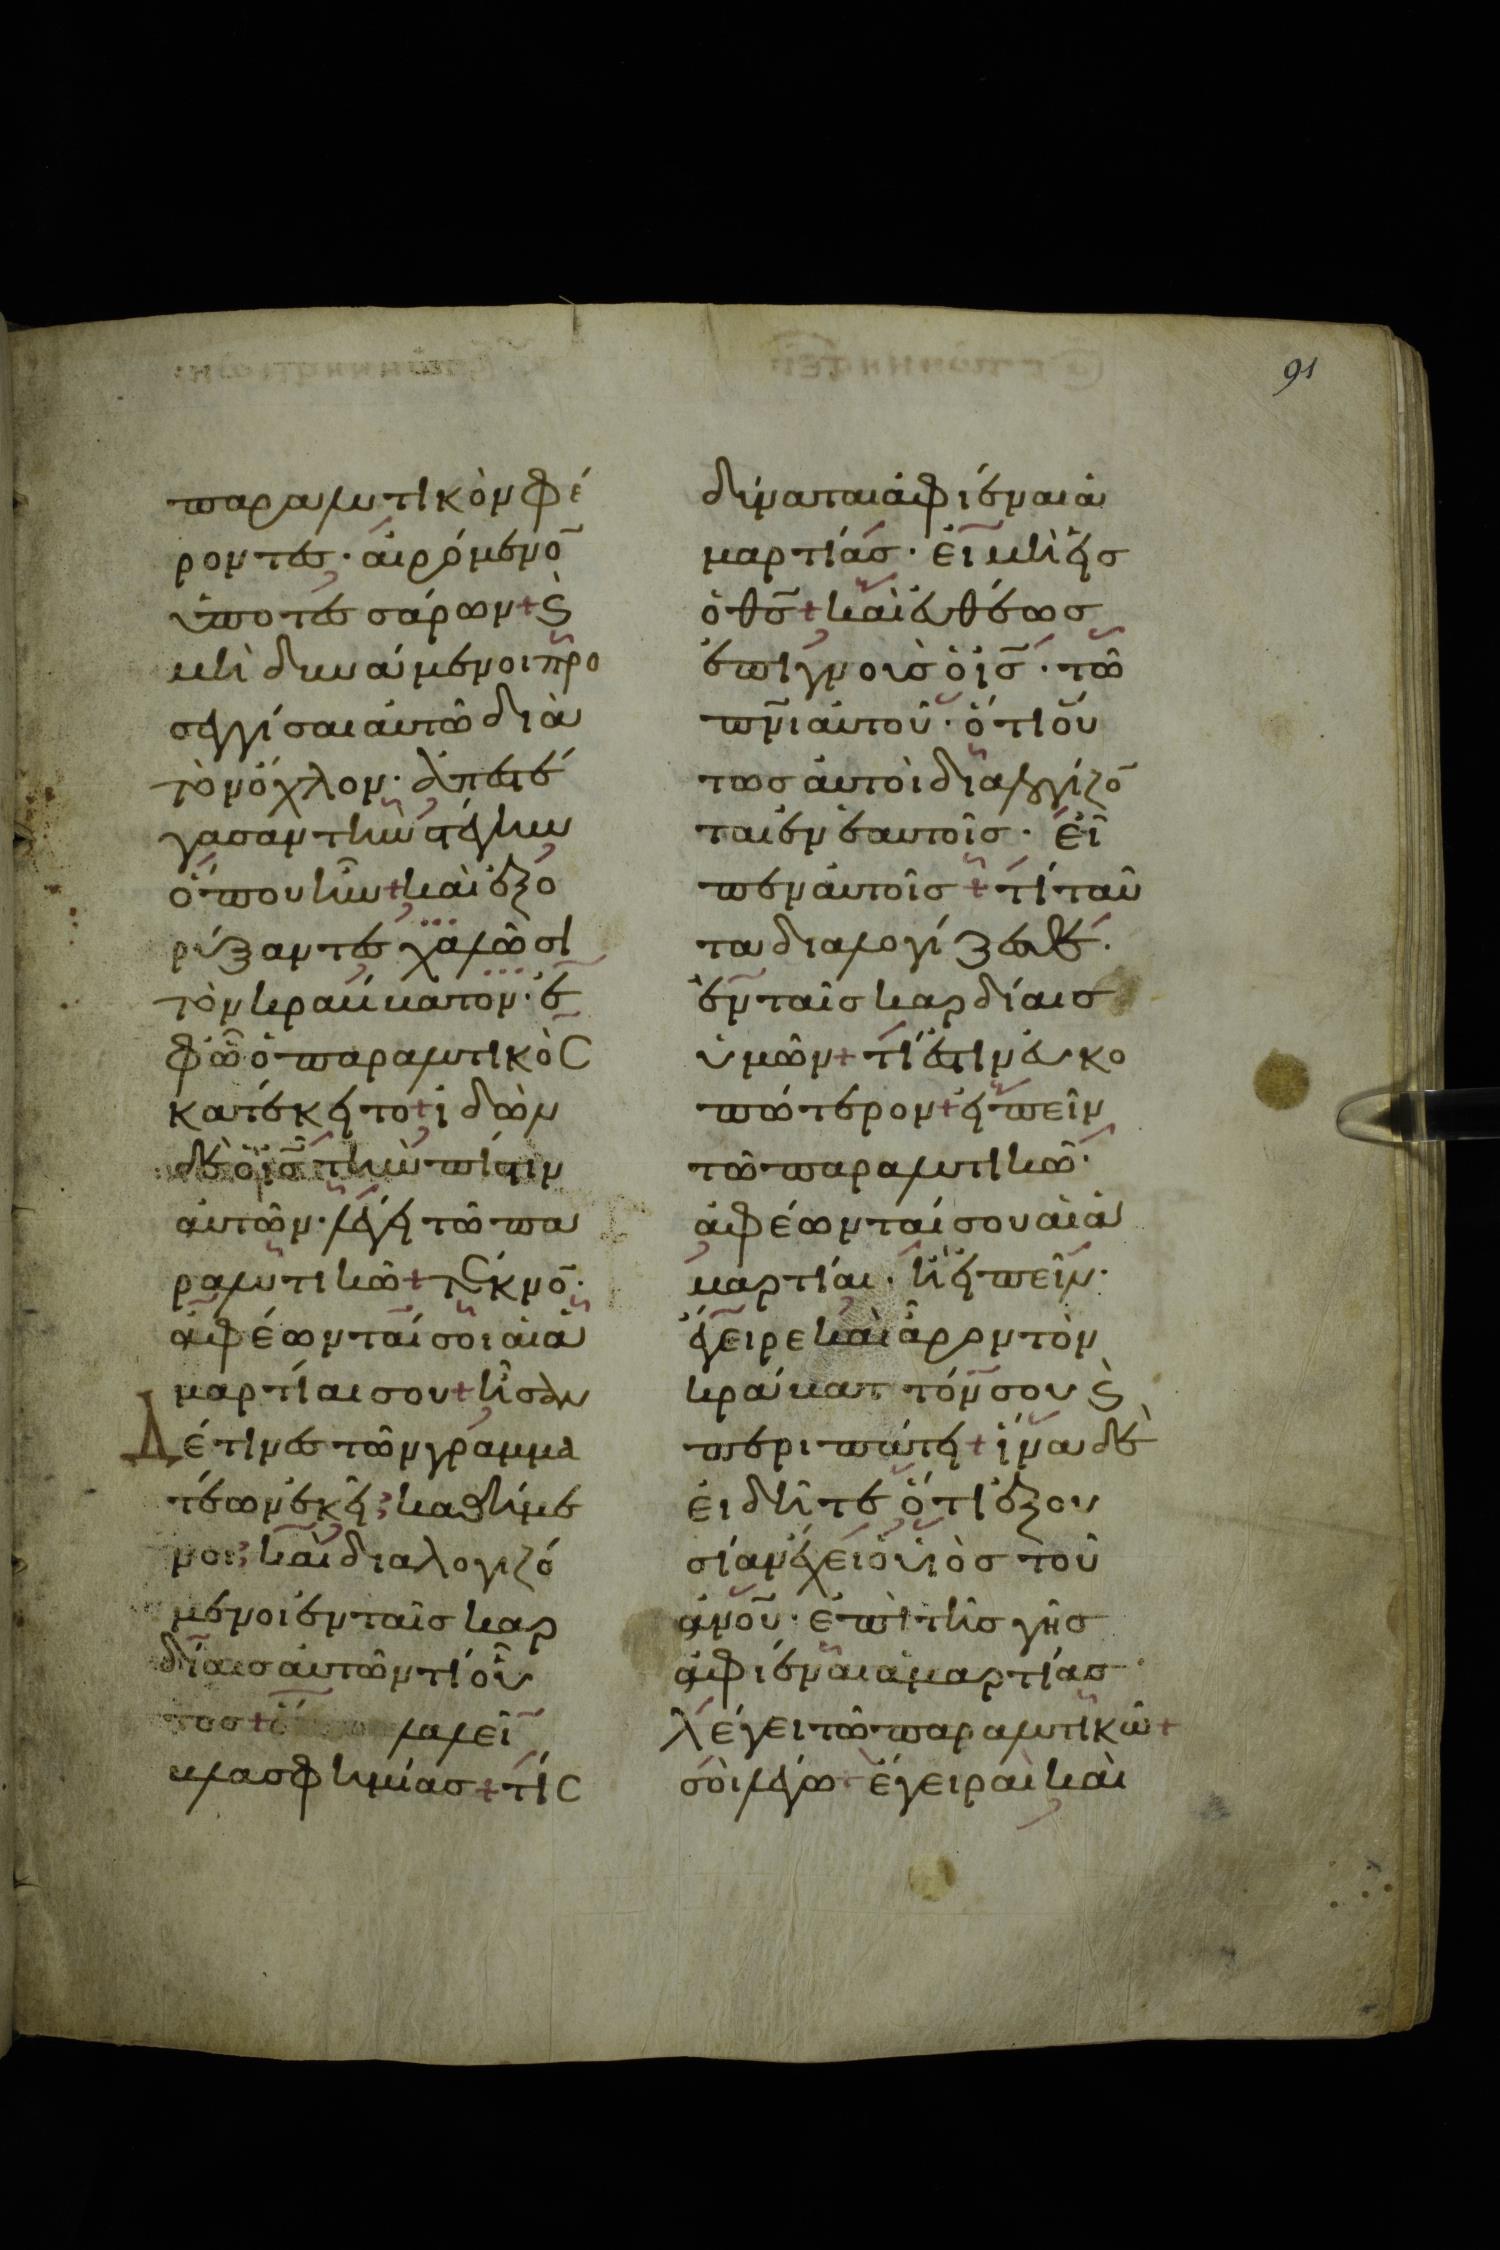 91
παραλυτικὸν φέ
ροντες· ἀιρόμενο̄
ὑπο τεσσάρων + ϗ
μὴ δυνάμενοι προ
σεγγίσαι αυτῶ διὰ
τὸν ὄχλον· ἀπεστέ
γασαν τὴν στέγην
ὅπου ἦν + καὶ ἐξο
ρύξαντες χαλῶσι
τὸν κράββατον· ἐ
φῶ ὁ παραλυτικὸς
κατέκειτο + ἰδὼν
δὲ ὁ ι̅σ̅ τὴν πίστιν
ἀυτῶν· λέγει τῶ πα
ραλυτικῶ + τέκνο̄·
ἀφέωνταί σοι αἱ ἁ
μαρτίαι σου + ἦσαν
Δέ τινες τῶν γραμμα
τέων ἐκεῖ; καθήμε
νοι; καὶ διαλογιζό
μενοι ἐν ταῖς καρ
δίαις ἀυτῶν τί οὗ
τος + λαλεῖ
βλασφημίας + τίς
δύναται ἀφιέναι ἁ
μαρτίας· εἰ μὴ εἷς
ὁ θ̅σ̅ + καὶ ἐυθέως
ἐπιγνοὺς ὁ ι̅σ̅· τῶ
π̅ν̅ι ἀυτοῦ· ὅτι οὕ
τως ἀυτοὶ διαλογίζο̄
ται ἐν ἑαυτοῖς· εἶ
πεν ἀυτοῖς + τί ταῦ
τα διαλογίζεσθε·
ἐν ταῖς καρδίαις
ὑμῶν + τί ἐστιν ἐυκο
πώτερον + ἐιπεῖν
τῶ παραλυτικῶ·
ἀφέωνταί σου αἱ ἁ
μαρτίαι· ἢ ἐιπεῖν·
ἔγειρε καὶ ἆρον τὸν
κράβαττόν σου ϗ
περιπάτει + ἵνα δὲ
ἐιδῆτε ὅτι ἐξου
σίαν ἔχει ὁ υἱὸς τοῦ
ἀ̅ν̅ο̅υ̅· ἐπὶ τῆς γῆς
ἀφιέναι ἁμαρτίας·
λέγει τῶ παραλυτικῶ +
σοὶ λέγω + ἔγειραι καὶ